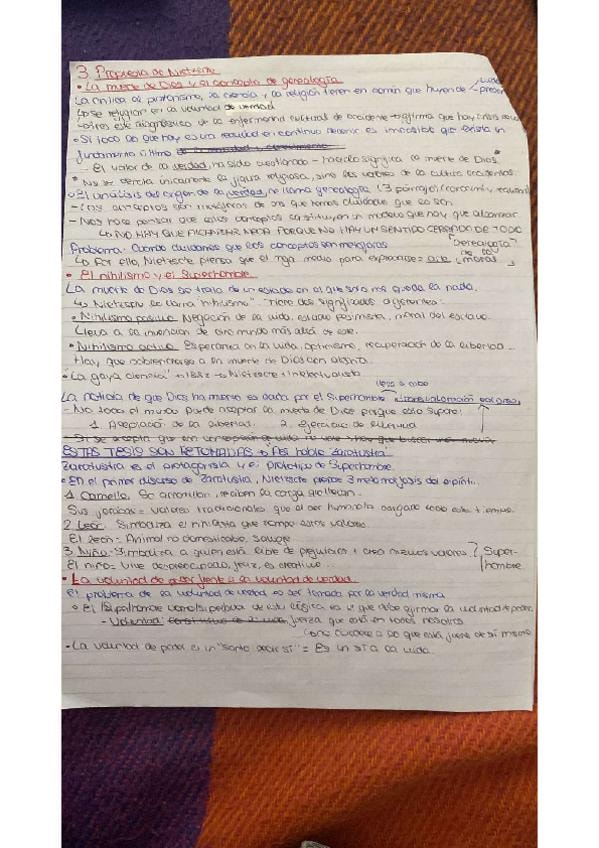 3. Propuesta de Nietzsche
• La muerte de Dios y el concepto de genealogía
La crítica al platonismo, la ciencia y la religión tienen en común que huyen de
↳ se refugian en la voluntad de verdad
este diagnóstico de la enfermedad cultural de occidente → afirma que hay crisis
• Si todo lo que hay es una realidad en continuo devenir es imposible que exista un
fundamento último
- El valor de la verdad ha sido cuestionado - hacerlo significa la muerte de Dios.
* No se cierra únicamente la figura religiosa, sino los valores de la cultura occidental.
• El análisis del origen de la verdad se llama genealogía
- Los conceptos son metáforas de las que hemos olvidado que lo son
- Nos hace pensar que estos conceptos constituyen un modelo que hay que alcanzar
↳ NO HAY QUE ALCANZAR NADA PORQUE NO HAY UN SENTIDO CERRADO DE TODO
Problema: Cuando olvidamos que los conceptos son metáforas
↳ Por ello, Nietzsche piensa que el mejor medio para expresarse = arte
• El nihilismo y el Superhombre
La muerte de Dios se trata de un estado en el que solo nos queda la nada.
↳ Nietzsche lo llama "nihilismo". Tiene dos significados diferentes:
• Nihilismo pasivo: Negación de la vida, estado pesimista, moral del esclavo.
Lleva a la invención de otro mundo más allá de este.
• Nihilismo activo: Esperanza en la vida, optimismo, recuperación de la libertad...
Hay que sobreponerse a la muerte de Dios con alegría.
• "La gaya ciencia" → 1882 → Nietzsche
lleva a cabo
La noticia de que Dios ha muerto es dada por el Superhombre transvaloración valores
- No todo el mundo puede aceptar la muerte de Dios porque esto supone:
1. Aceptación de la libertad. 2. Ejercicio de
ESTAS TESIS SON RETOMADAS → "Así habló Zaratustra"
Zaratustra es el protagonista y el prototipo de Superhombre.
• En el primer discurso de Zaratustra, Nietzsche 3 metamorfosis del espíritu.
1. Camello: Se arrodillan, reciben la carga y la llevan.
Sus jorobas = valores tradicionales que el ser humano ha cargado todo este tiempo.
2. León: Simboliza el nihilista que rompe estos valores.
El león = Animal no domesticable, salvaje
3. Niño: Simboliza a quien está libre de prejuicios y crea nuevos valores. Super-
El niño = Vive despreocupado, feliz, es creativo... hombre
• La voluntad de poder frente a la voluntad de verdad
El problema de la voluntad de verdad es ser tomada por la verdad misma
• El Superhombre como es de esta lógica es el que debe afirmar la voluntad de poder.
- Voluntad: fuerza que está en todos nosotros
a lo que está fuera de sí mismo
• La voluntad de poder es un "santo decir sí" = Es un sí a la vida.